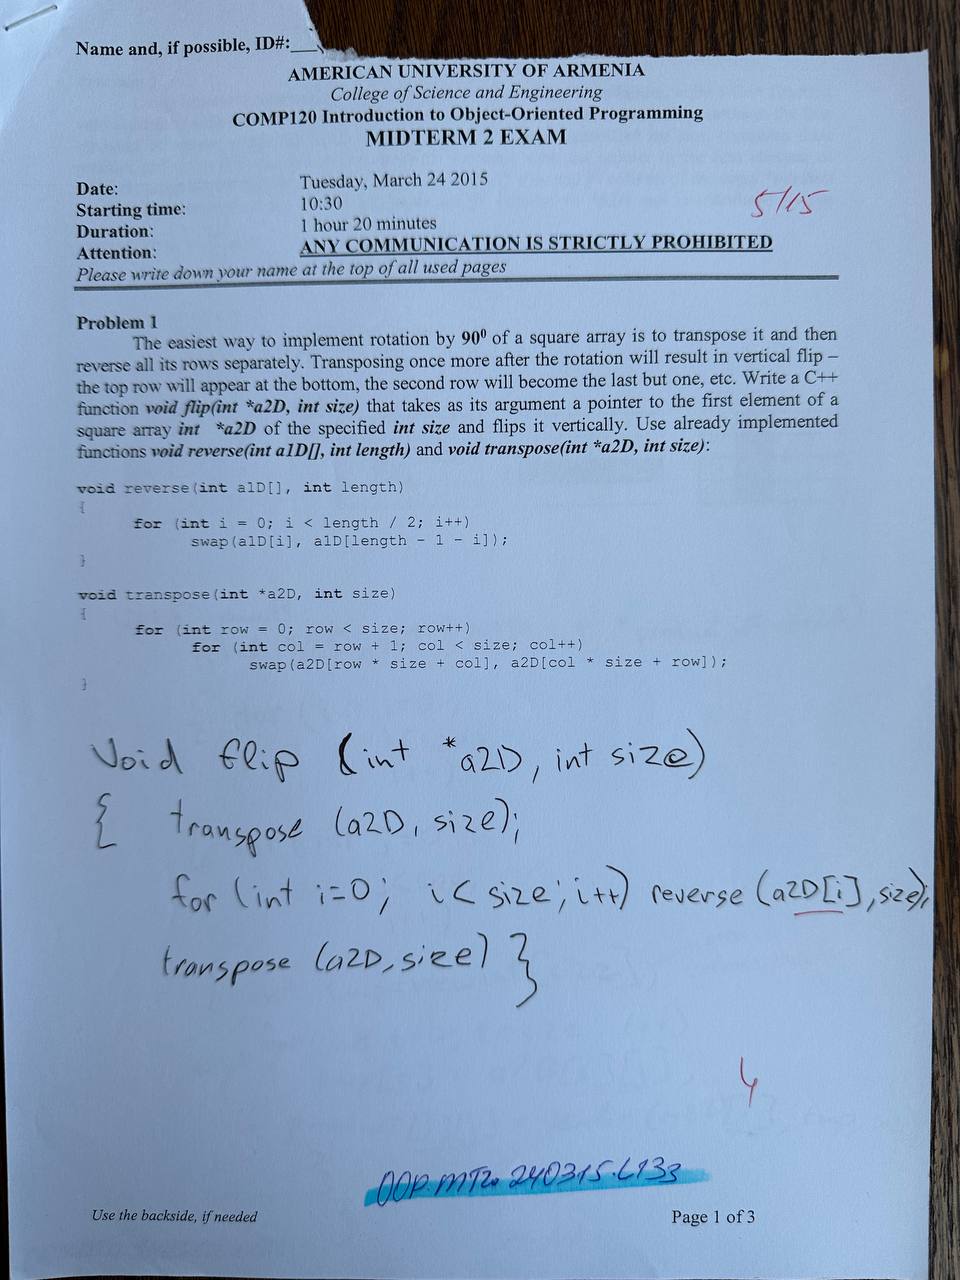 Name and, if possible, ID#:
AMERICAN UNIVERSITY OF ARMENIA
College of Science and Engineering
COMP120 Introduction to Object-Oriented Programming
MIDTERM 2 EXAM
Date: Tuesday, March 24 2015
Starting time: 10:30
Duration: 1 hour 20 minutes
Attention: ANY COMMUNICATION IS STRICTLY PROHIBITED
Please write down your name at the top of all used pages
5/15
Problem 1
The easiest way to implement rotation by 90⁰ of a square array is to transpose it and then
reverse all its rows separately. Transposing once more after the rotation will result in vertical flip –
the top row will appear at the bottom, the second row will become the last but one, etc. Write a C++
function void flip(int *a2D, int size) that takes as its argument a pointer to the first element of a
square array int *a2D of the specified int size and flips it vertically. Use already implemented
functions void reverse(int a1D[], int length) and void transpose(int *a2D, int size):
void reverse(int a1D[], int length)
{
for (int i = 0; i < length / 2; i++)
swap(a1D[i], a1D[length - 1 - i]);
}
void transpose(int *a2D, int size)
{
for (int row = 0; row < size; row++)
for (int col = row + 1; col < size; col++)
swap(a2D[row * size + col], a2D[col * size + row]);
}
Void flip (int *a2D, int size)
{ transpose (a2D, size);
for (int i=0; i< size; i++) reverse (a2D[i], size);
transpose (a2D, size) }
4
OOP.MT2.240315.L133
Use the backside, if needed
Page 1 of 3